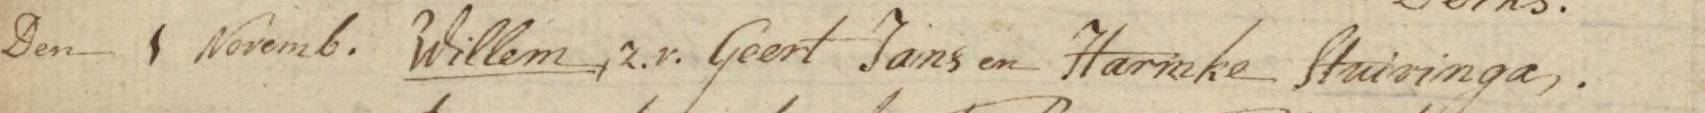 Den 1 Novemb. Willem, z.v. Geert Jans en Harmke Stuivinga,.